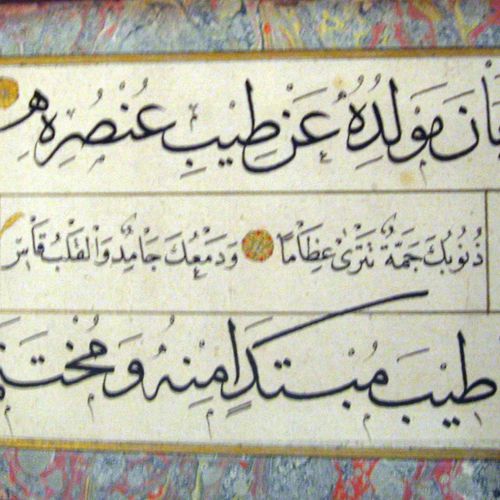 بَانَ مَوْلِدُهُ عَنْ طِيْبِ عُنْصُرِهِ
ذُنُوبُكَ جَمَّةٌ تَتْرٰى عِظَامًا وَدَمْعُكَ جَامِدٌ وَالْقَلْبُ قَاسٍ
طِيْبَ مُبْتَدَإٍ مِنْهُ وَمُخْتَتَ